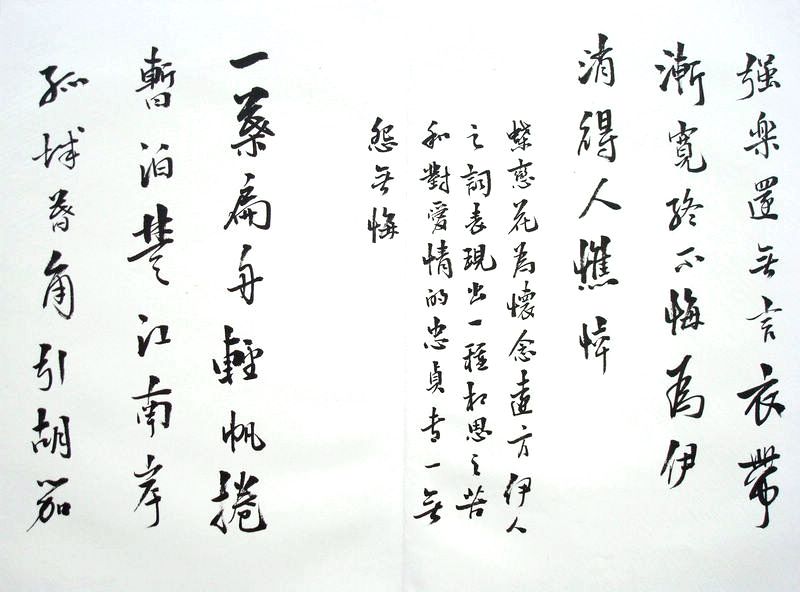 强樂還無言衣帶
漸寬終不悔為伊
消得人憔悴
蝶戀花為懷念遠方伊人
之詞表現出一種相思之苦
和對愛情的忠貞专一無
怨無悔
一葉扁舟輕帆捲
暫泊楚江南岸
孤城暮角引胡笳